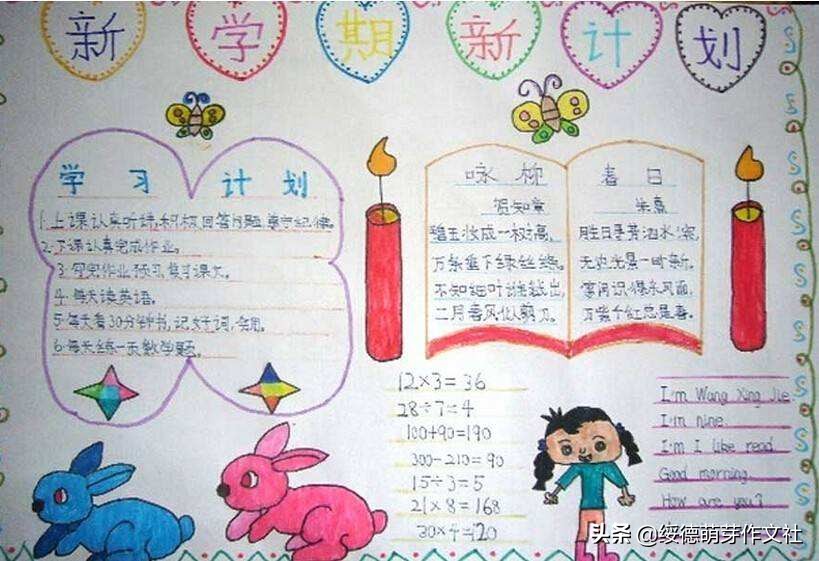 新学期新计划
学习计划
1.上课认真听讲,积极回答问题,遵守纪律。
2.下课认真完成作业。
3.写完作业预习,复习课文。
4.每天读英语。
5.每天看30分钟书,记好词,
6.每天练一天数学题。
咏柳
贺知章
碧玉妆成一树高,
万条垂下绿丝绦。
不知细叶谁裁出,
二月春风似剪刀。
春日
朱熹
胜日寻芳泗水滨,
无边光景一时新。
等闲识得东风面,
万紫千红总是春。
12×3=36
28÷7=4
100+90=190
300-210=90
15÷3=5
21×8=168
30×4=120
I'm Wang Xing Jie
I'm nine
I'm I like read
Good morning
How are you?
头条 @绥德萌芽作文社